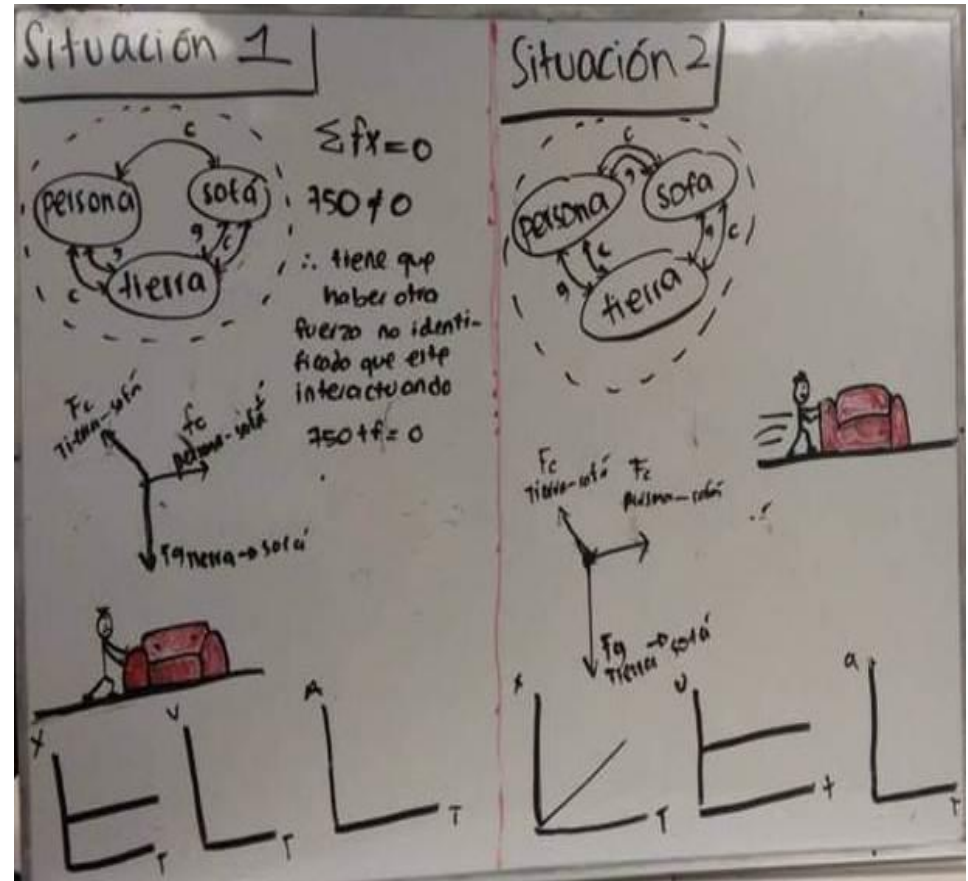 Situación 1
c
persona
sofá
g
c
g
c
tierra
Σfx=0
750≠0
∴ tiene que
haber otra
fuerza no identi-
ficado que este
interactuando
750+f=0
Fc
Tierra-sofá
fc
persona-sofá
Fg tierra→sofá
X
T
V
T
A
T
Situación 2
c
g
persona
sofa
c
g
g
c
tierra
Fc
Tierra-sofá
Fc
persona-sofá
Fg
Tierra→sofá
x
T
v
t
a
T